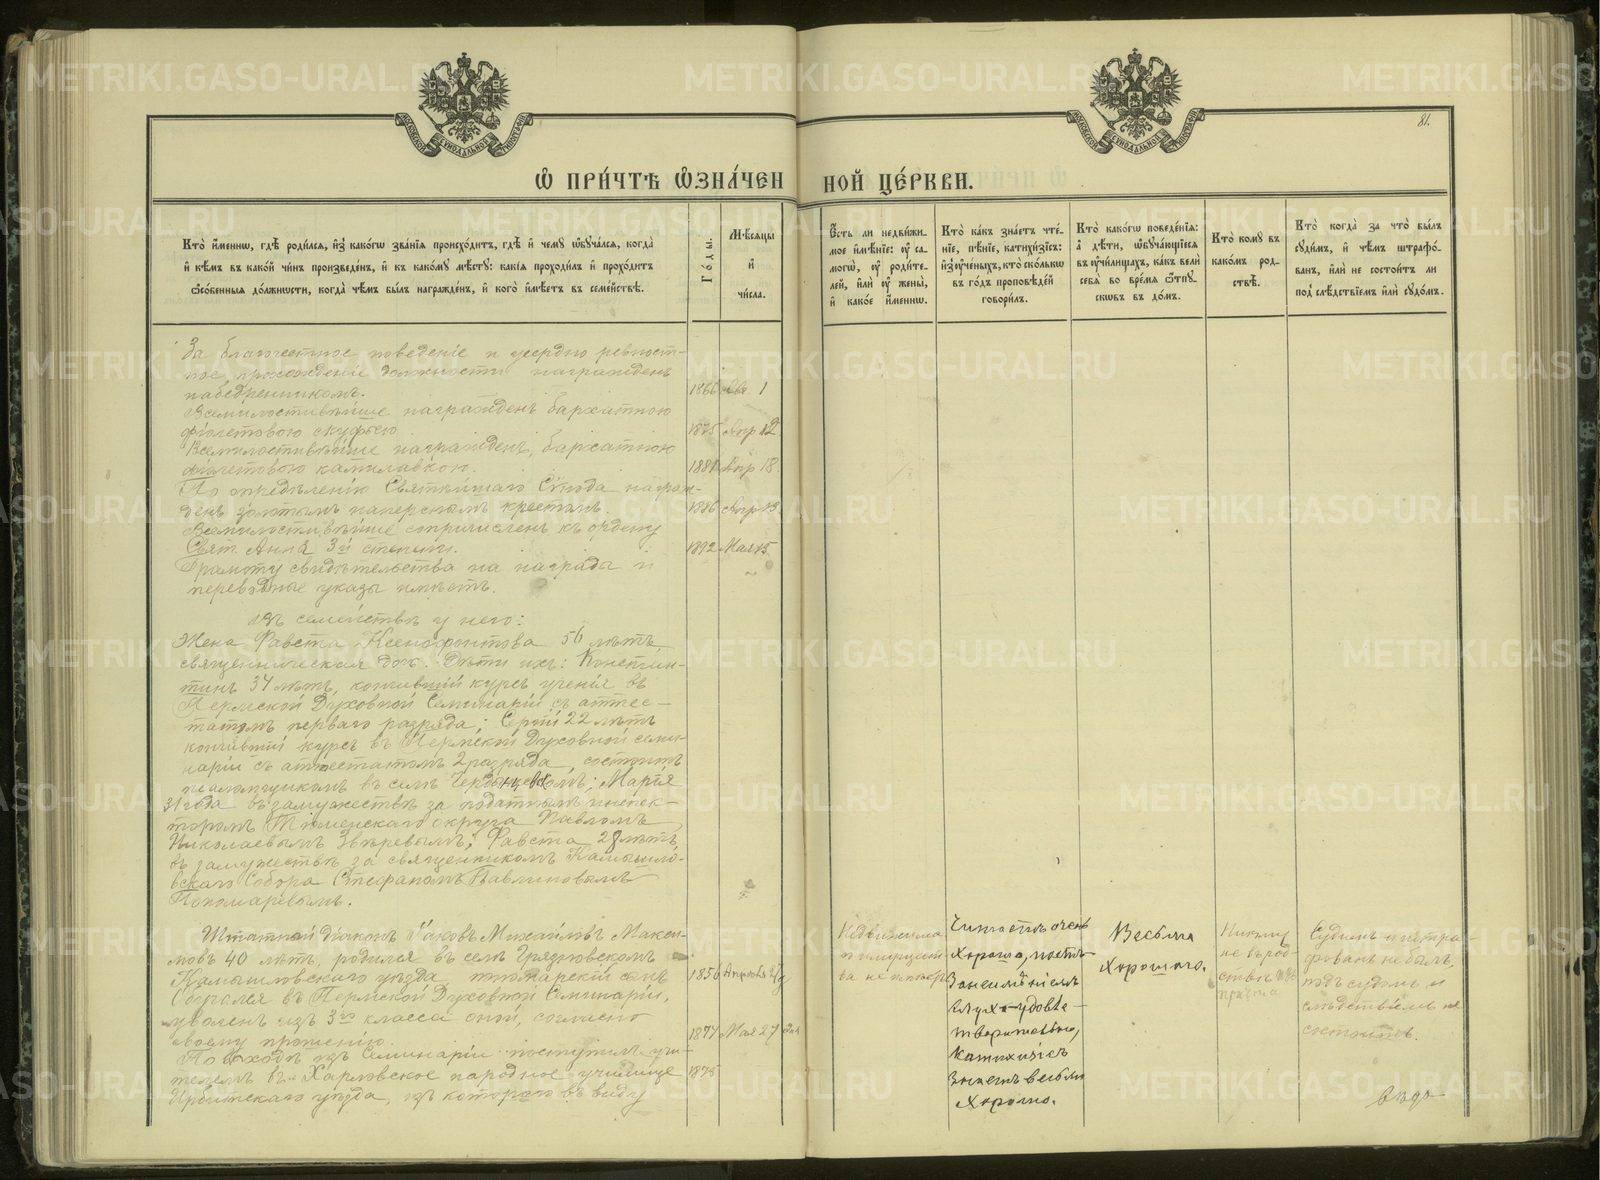 METRIKI.GASO-URAL.RU
81.
Ѿ ПРИ́ЧТѢ Ѡ҆ЗНА́ЧЕННОЙ ЦЕ́РКВИ.
Кто̀ и҆́меннѡ, гдѣ̀ роди́лсѧ, и҆з̾ како́гѡ зва́нїѧ происхо́дитъ, гдѣ̀ и҆ чемꙋ̀ ѡ҆бꙋча́лсѧ, когда̀
и҆ кѣ́мъ въ како́й чи́нъ произведе́нъ, и҆ къ како́мꙋ мѣ́стꙋ: какі̑ѧ проходи́лъ и҆ прохо́дитъ
ѻ҆со́бенныѧ до́лжности, когда̀ чѣ́мъ бы́лъ награжде́нъ, и҆ кого̀ и҆мѣ́етъ въ семе́йствѣ.
Го́ды.
Мѣ́сѧцы
и҆
чи́сла.
Є҆́сть ли недви́жи-
мое и҆мѣ́нїе: ᲂу҆ са-
могѡ̀, ᲂу҆ роди́те-
лей, и҆лѝ ᲂу҆ жены̀,
и҆ како́е и҆́меннѡ.
Кто̀ ка́къ зна́етъ чте́-
нїе, пѣ́нїе, катихи́зїсъ:
и҆з̾ ᲂу҆че́ныхъ, кто̀ ско́лькѡ
въ го́дъ про́повѣдей
говори́лъ.
Кто̀ како́гѡ поведе́нїѧ:
а҆ дѣ́ти, ѡ҆бꙋча́ющїесѧ
въ ᲂу҆чи́лищахъ, ка́къ велѝ
себѧ̀ во вре́мѧ ѿпꙋ-
скѡ́въ въ до́мъ.
Кто̀ комꙋ̀ въ
како́мъ род-
ствѣ̀.
Кто̀ когда̀ за что̀ бы́лъ
сꙋди́мъ, и҆ чѣ́мъ штрафо́-
ванъ, и҆лѝ не состои́тъ ли
под̾ слѣ́дствїемъ и҆лѝ сꙋдо́мъ.
За благочестное поведеніе и усердно ревност-
ное прохожденіе должности награжденъ
набедренникомъ. 1866 Ав 1
Всемилостивѣйше награжденъ бархатною
фіолетовою скуфьею 1875 Апр 12
Всемилостивѣйше награжденъ, бархатною
фіолетовою камилавкою. 1881 Апр 18
По опредѣленію Святѣйшаго Сѵнода награж-
денъ золотымъ наперснымъ крестомъ. 1886 Апр 13
Всемилостивѣйше сопричисленъ къ ордену
Свят. Анны 3й степени. 1892 Мая 15
Грамоту свидѣтельства на награды и
переводные указы имѣетъ.
Въ семействѣ у него:
Жена Фавста Ксенофонтова 56 лѣтъ,
священническая доч. Дѣти ихъ: Констан-
тинъ 34 лѣтъ, кончившій курсъ ученія въ
Пермской Духовной Семинаріи съ аттес-
татомъ перваго разряда; Сергій 22 лѣтъ
кончившій курсъ въ Пермской Духовной семи-
наріи съ аттестатомъ 2 разряда, состоитъ
псаломщикомъ въ селѣ; Марія
31 года въ замужествѣ за податнымъ инспек-
торомъ Тюменскаго округа Павломъ
Николаевымъ Звѣревымъ; Фавста 28 лѣтъ,
въ замужествѣ за священникомъ Камышло-
вскаго Собора Стефаномъ Павлиновымъ
Пономаревымъ.
Штатный діаконъ Іаковъ Михайловъ Макси-
мовъ 40 лѣтъ, родился въ селѣ Грязновскомъ
Камышловскаго уѣзда, пономарскій сынъ 1856 Апрѣля
Обучался въ Пермской Духовной Семинаріи,
уволенъ изъ 3го класса оной, согласно
своему прошенію. 1874 Мая 27 дня
По выходѣ изъ Семинаріи поступилъ учи-
телемъ въ Харловское народное училище 1875
Ирбитскаго уѣзда, изъ котораго въ виду
Недвижима
го имущест-
ва не имѣетъ
Читаетъ очень
хорошо, поетъ
удовле-
творительно,
катихизисъ
знаетъ весьма
хорошо.
Весьма
хорошаго.
Никому
не въ род-
ствѣ
причта
Судимъ и штра-
фованъ не былъ,
подъ судомъ и
слѣдствіемъ не
состоитъ.